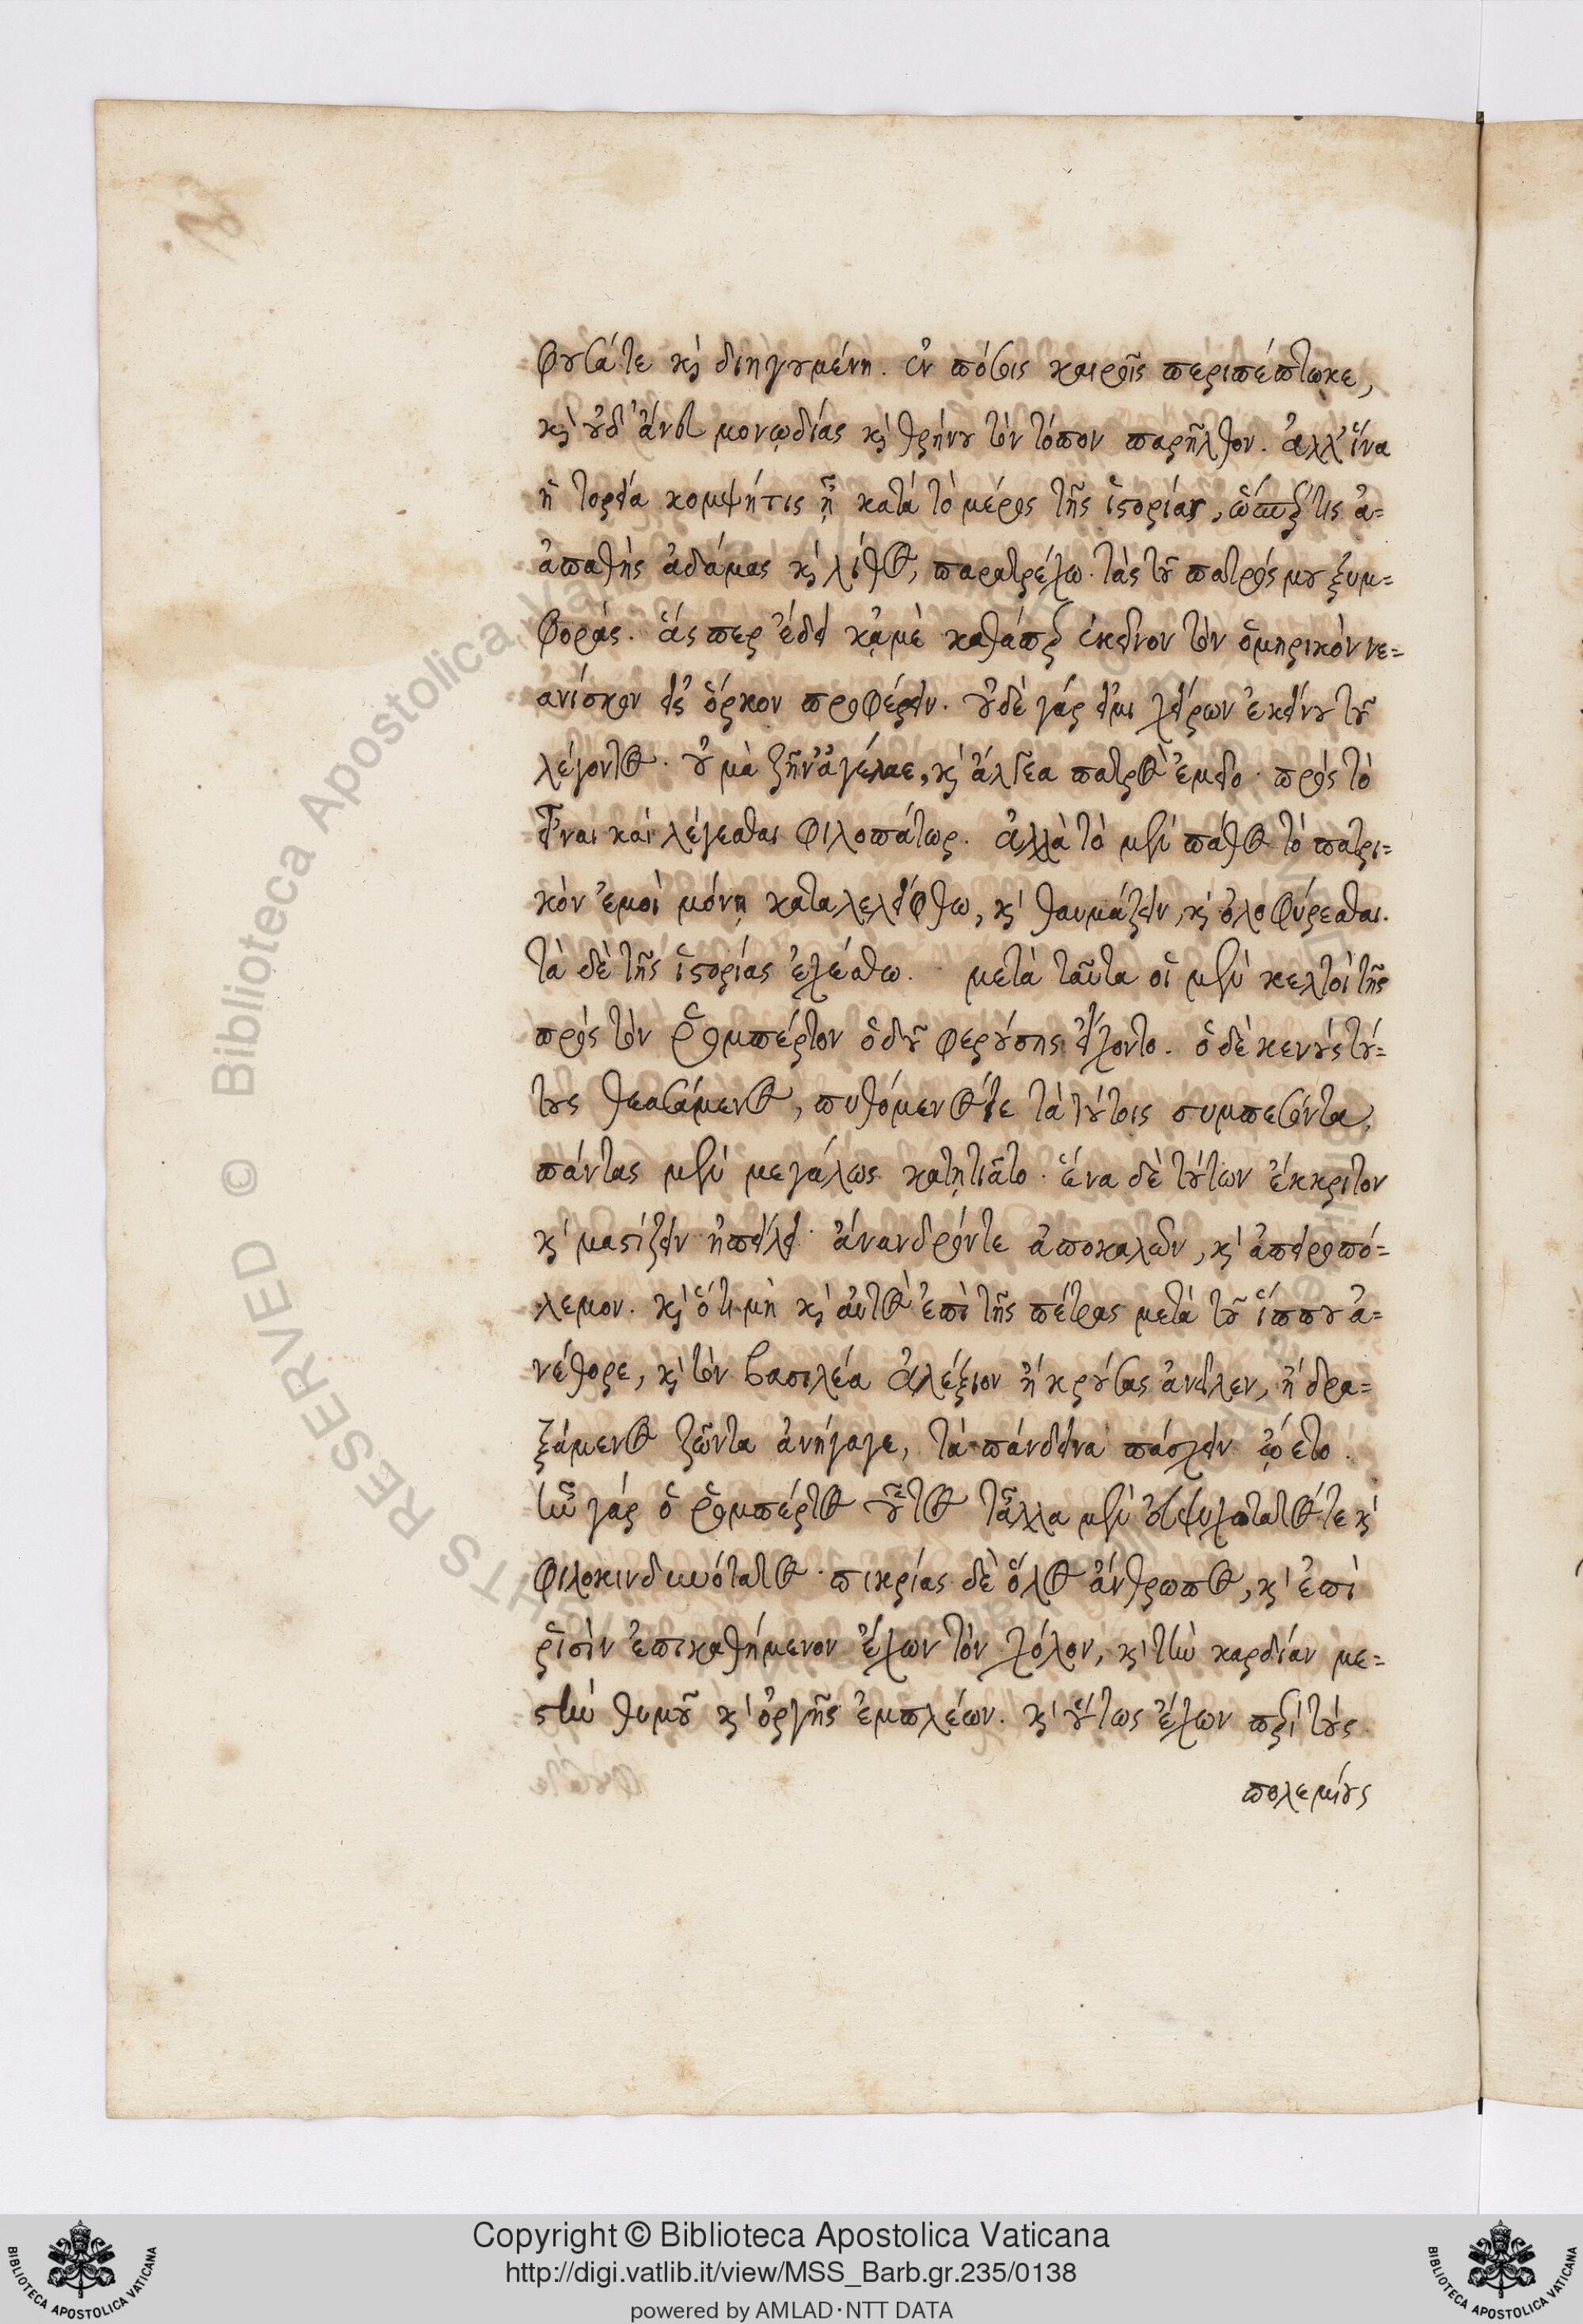 φουσά τε κ διηγουμένη. ἐν πόσοις καιροῖς περιπέπτωκε,
κ οὐδ' ἄνευ μονωδίας κ θρήνου τὸν τόπον παρῆλθον. ἀλλ' ἵνα
ἡ κατὰ τὸ μέρος τῆς ἱστορίας, ὥσπερ τὶς ἀ=
ἀπαθὴς ἀδάμας κ λίθος, παρατρέχω τὰς τοῦ πατρός μου ξυμ=
φοράς. ἅς περ ἔδει κἀμὲ καθάπερ ἐκεῖνον τὸν ὁμηρικὸν νε=
ανίσκον εἰς ὅρκον προφέρειν. οὐδὲ γάρ εἰμι χείρων ἐκείνου τοῦ
λέγοντος. οὐ μὰ ζῆν' ἀγέλαε, κ ἄλγεα πατρὸς ἐμεῖο πρὸς τὸ
εἶναι καὶ λέγεσθαι φιλοπάτωρ. ἀλλὰ τὸ μὲν πάθος τὸ πατρι=
κὸν ἐμοὶ μόνῃ καταλελείφθω, κ θαυμάζειν, κ ὀλοφύρεσθαι.
τὰ δὲ τῆς ἱστορίας ἐχέσθω. μετὰ ταῦτα οἱ μὲν κελτοὶ τῆς
πρὸς τὸν ῥομπέρτον ὁδοῦ φερούσης εἴχοντο. ὁ δὲ κενοὺς τού=
τους θεασάμενος, πυθόμενός τε τὰ τούτοις συμπεσόντα,
πάντας μὲν μεγάλως κατῃτιᾶτο. ἕνα δὲ τούτων ἔκκριτον
κ μαστίζειν ἠπείλει ἄνανδρόν τε ἀποκαλῶν, κ ἀπειροπό=
λεμον. κ ὅτι μὴ κ αὐτὸς ἐπὶ τῆς πέτρας μετὰ τοῦ ἵππου ἀ=
νέθορε, κ τὸν βασιλέα ἀλέξιον ἢ κρούσας ἀνεῖλεν, ἢ δρα=
ξάμενος ζῶντα ἀνήγαγε, τὰ πάνδεινα πάσχειν ᾤετο.
ἦν γὰρ ὁ ῥομπέρτος οὗτος τἆλλα μὲν εὐψυχότατός τε κ
φιλοκινδυνότατος πικρίας δὲ ὅλος ἄνθρωπος, κ ἐπὶ
ῥισὶν ἐπικαθήμενον ἔχων τὸν χόλον, κ τὴν καρδίαν με=
στὴν θυμοῦ κ ὀργῆς ἐμπλέων. κ οὕτως ἔχων περὶ τοὺς
πολεμίους
Copyright © Biblioteca Apostolica Vaticana
http://digi.vatlib.it/view/MSS_Barb.gr.235/0138
powered by AMLAD·NTT DATA